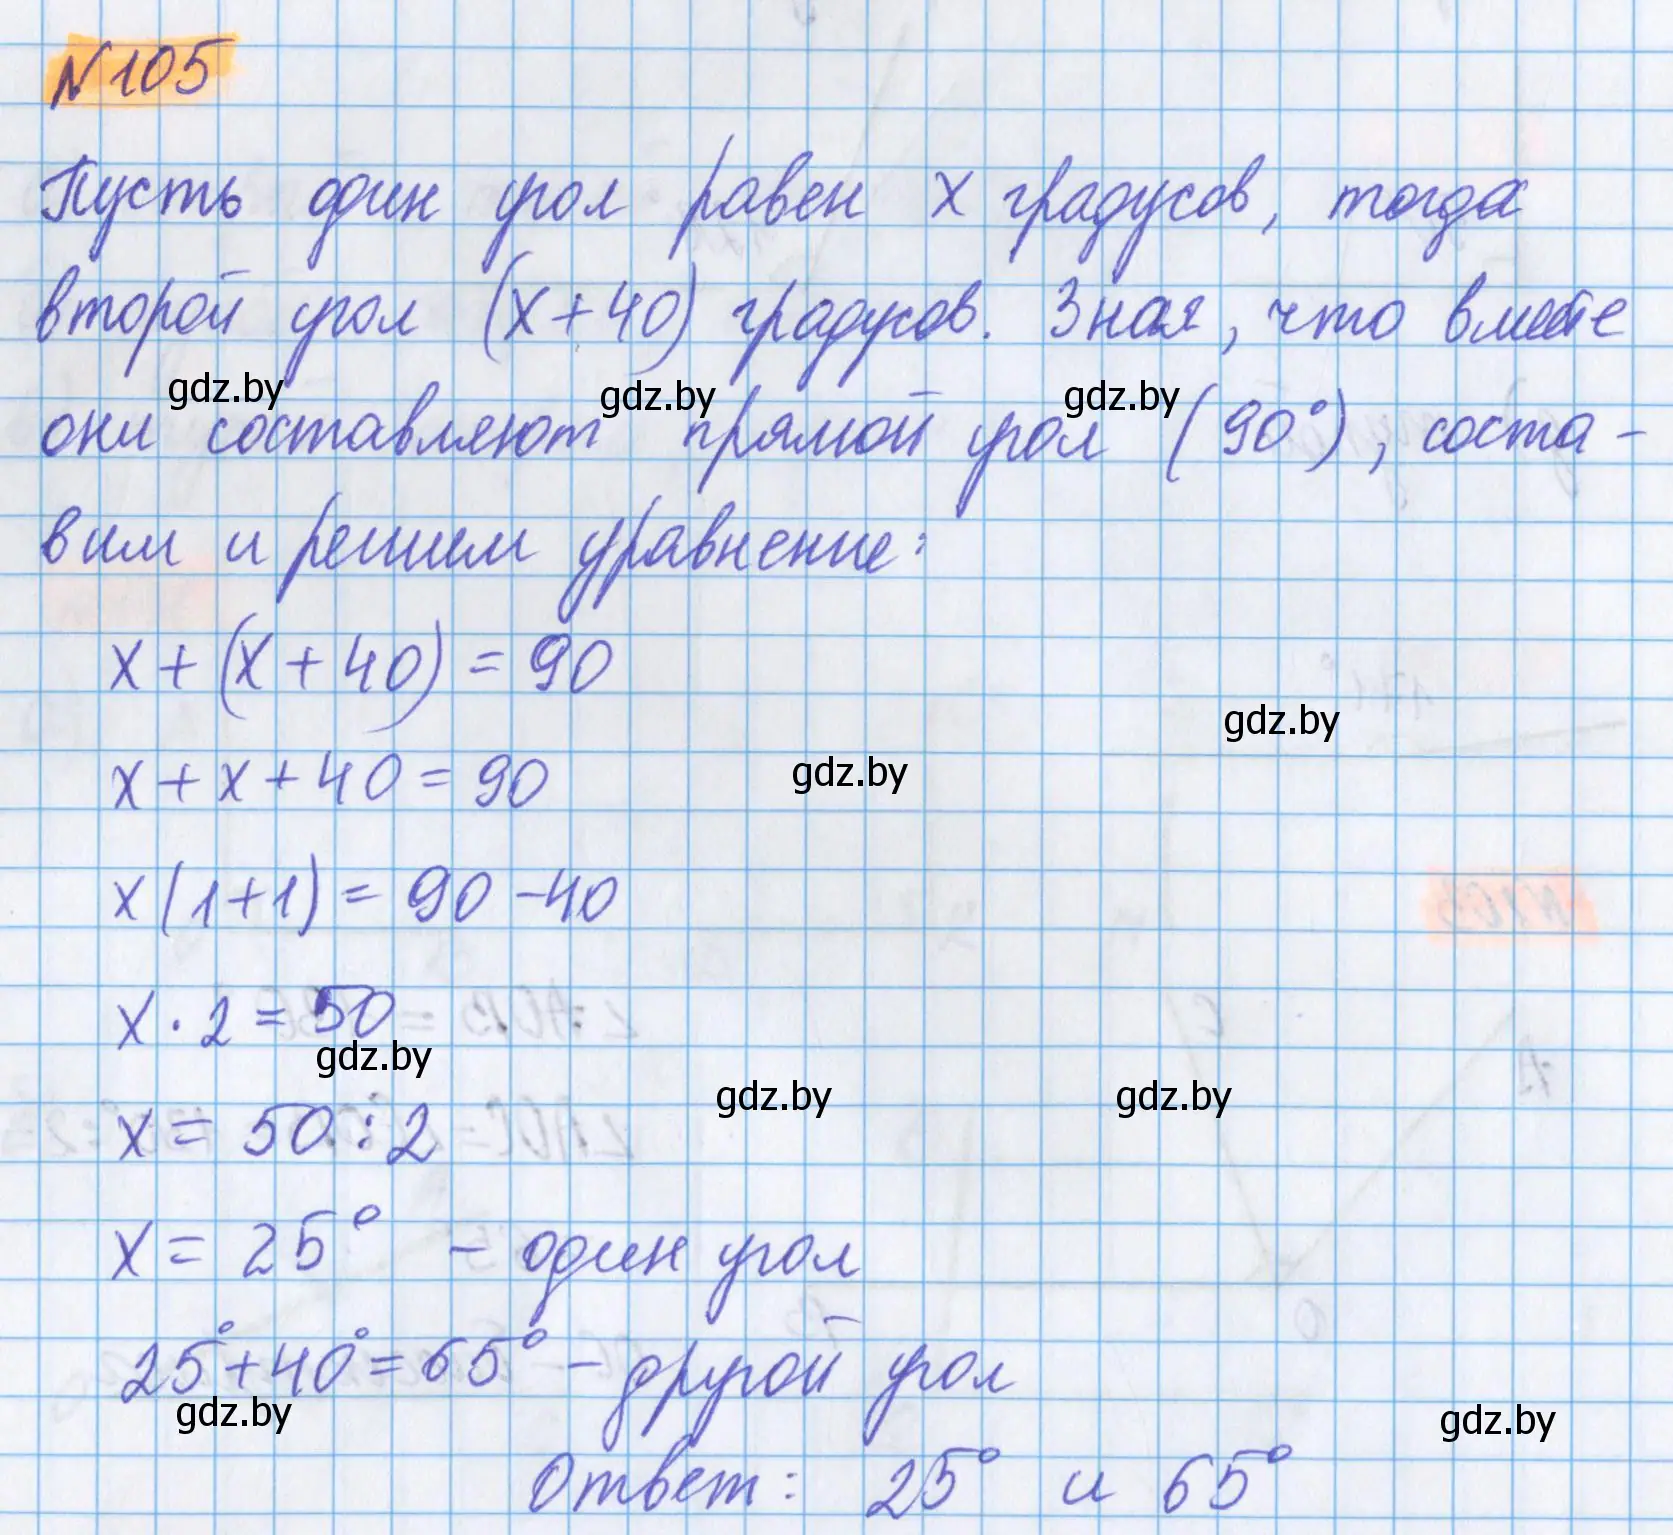 №105
Пусть один угол равен x градусов, тогда
второй угол (x+40) градусов. Зная, что вместе
gdz.by gdz.by gdz.by
они составляют прямой угол (90°), соста-
вим и решим уравнение:
x+(x+40)=90
gdz.by
x+x+40=90
gdz.by
x(1+1)=90-40
x·2=50
gdz.by
gdz.by gdz.by
x=50:2
x=25° - один угол
25°+40°=65° - другой угол
gdz.by gdz.by
Ответ: 25° и 65°